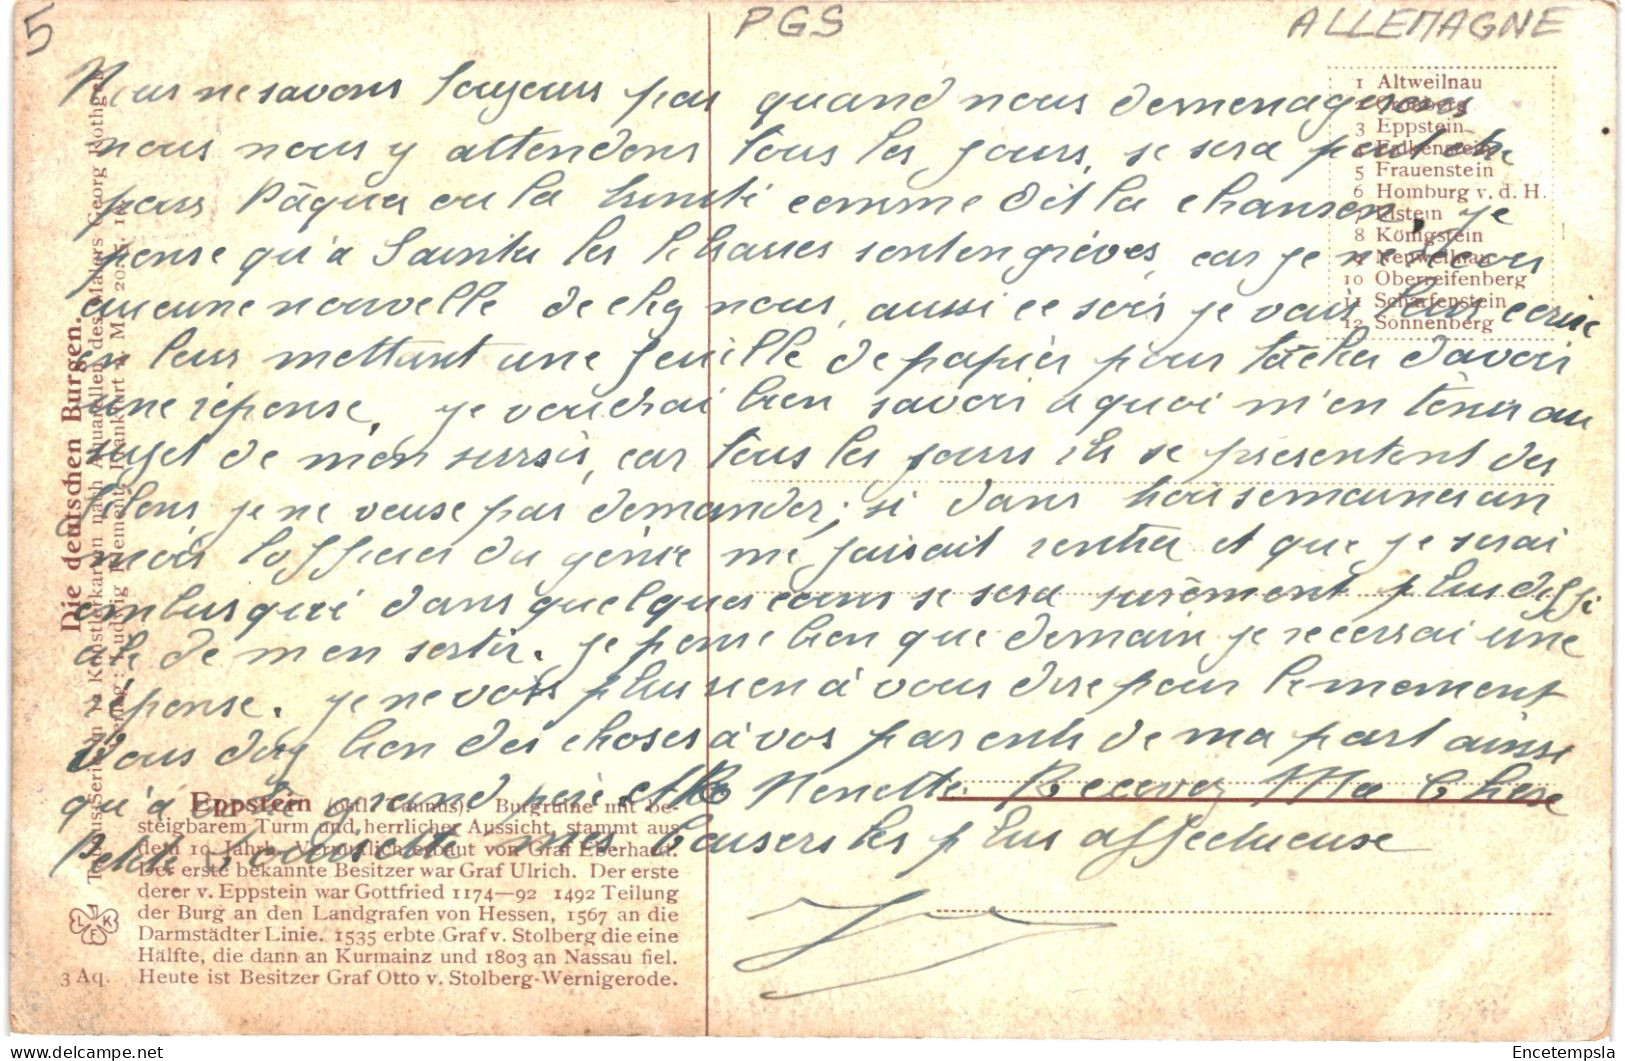 5
PGS
ALLEMAGNE
Nous ne savons toujours pas quand nous demenagerons
nous nous y attendons tous les jours, se sera peut etre
pour Pâques ou la trinité comme dit la chanson. je
pense qu'a les sont en grèves, car je ne reçois
aucune nouvelle de chez nous, aussi ce soir je vais leur ecrire
en leur mettant une feuille de papier pour tâcher d'avoir
une réponse. je voudrai bien savoir a quoi m'en tenir au
sujet de mon sursis, car tous les jours ils se presentent des
je ne veuse pas demander; si dans trois semaines un
mois l'officier du génie me faisait rentrer et que je serai
embusqué dans quelques se sera surèment plus diffi
cile de m'en sortir. je pense bien que demain je recevrai une
réponse. je ne vois plus rien à vous dire pour le moment
Vous direz bien des choses à vos parents de ma part ainsi
qu'à grand père et Nenette. Recevez Ma Chère
Petite mes baisers les plus affectueuse
1 Altweilnau
3 Eppstein
4 Falkenstein
5 Frauenstein
6 Homburg v. d. H.
7 Idstein
8 Königstein
9 Neuweilnau
10 Oberreifenberg
11 Scharfenstein
12 Sonnenberg
Die deutschen Burgen.
Taunus-Serie in 12 Künstlerkarten nach Aquarellen des Malers Georg Rothge
Verlag: Ludwig Klement, Frankfurt a. M.
Eppstein (östl. Taunus). Burgruine mit be-
steigbarem Turm und herrlicher Aussicht, stammt aus
dem 10. Jahrh. Vermutlich erbaut von Graf Eberhard.
Der erste bekannte Besitzer war Graf Ulrich. Der erste
derer v. Eppstein war Gottfried 1174—92 1492 Teilung
der Burg an den Landgrafen von Hessen, 1567 an die
Darmstädter Linie. 1535 erbte Graf v. Stolberg die eine
Hälfte, die dann an Kurmainz und 1803 an Nassau fiel.
3 Aq. Heute ist Besitzer Graf Otto v. Stolberg-Wernigerode.
Encetempsla